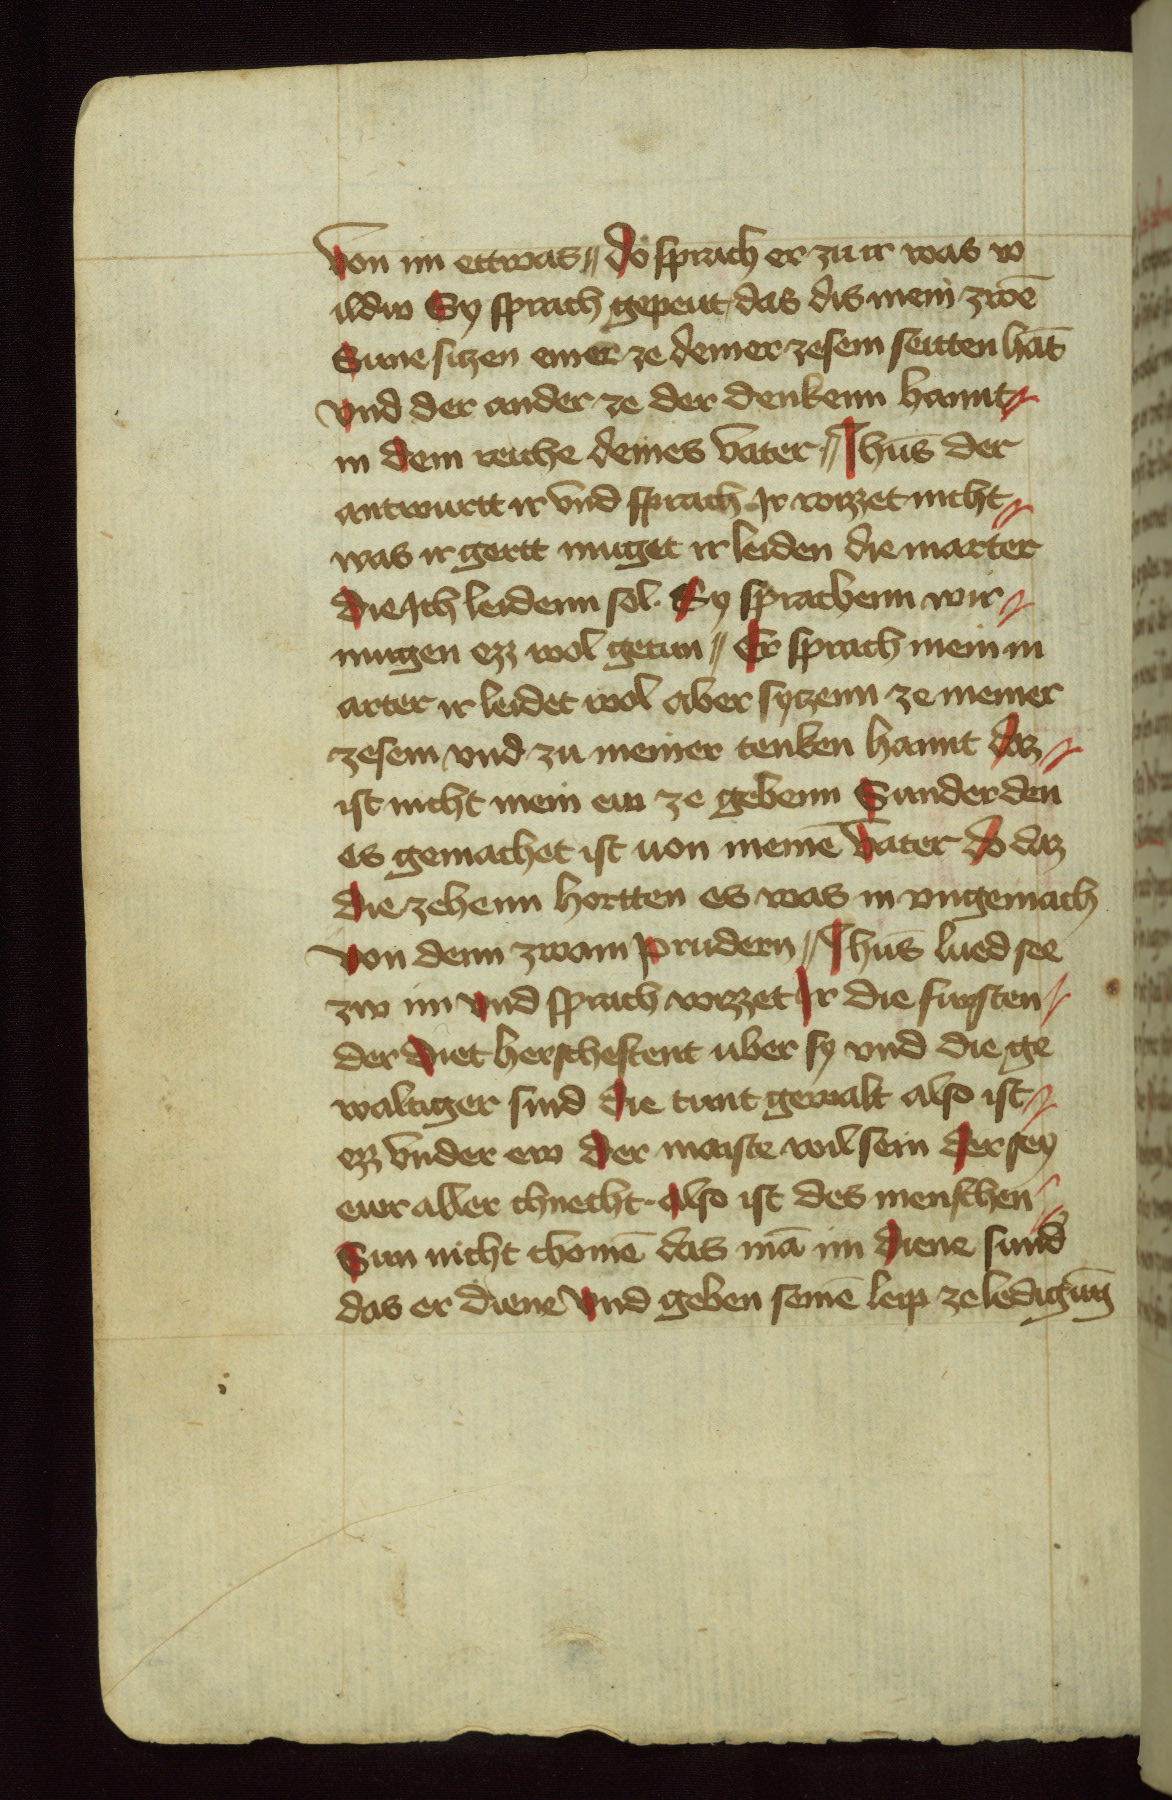 Von im ettwas // do sprach er zu ir was w
ildw Sy sprach gepeut das dis mein zwē
Sune siczen einer ze deiner zesem seitten hāt
vnd der ander ze der denkenn hannt
in dem reiche deines Vater // Jhūs der
antwurtt ir Vnd sprach Ir wizzet nicht
was ir gertt muget ir leiden die marter
die Ich leidenn sol. Sy sprachenn wir
mugen ezz wol getun // Er sprach mein m
arter ir leidet wol aber syczenn ze meiner
zesem vnd zu meiner tenken hannt daz
ist nicht mein ew ze gebenn Sunder den
es gemachet ist uon meinē Vater do daz
die zehenn hortten es was in vngemach
Von denn zwain prudern // Jhūs lued see
zw im vnd sprach wizzet Ir die fursten
der diet herscheftent uber sy vnd die ge
waltiger sind die tunt gewalt also ist
ezz Vnder ew der maiste wil sein der sey
ewr aller chnecht. also ist des menschen
Sun nicht chomē das mā im diene sund̄
das er diene Vnd geben seinē leip ze ledigūg